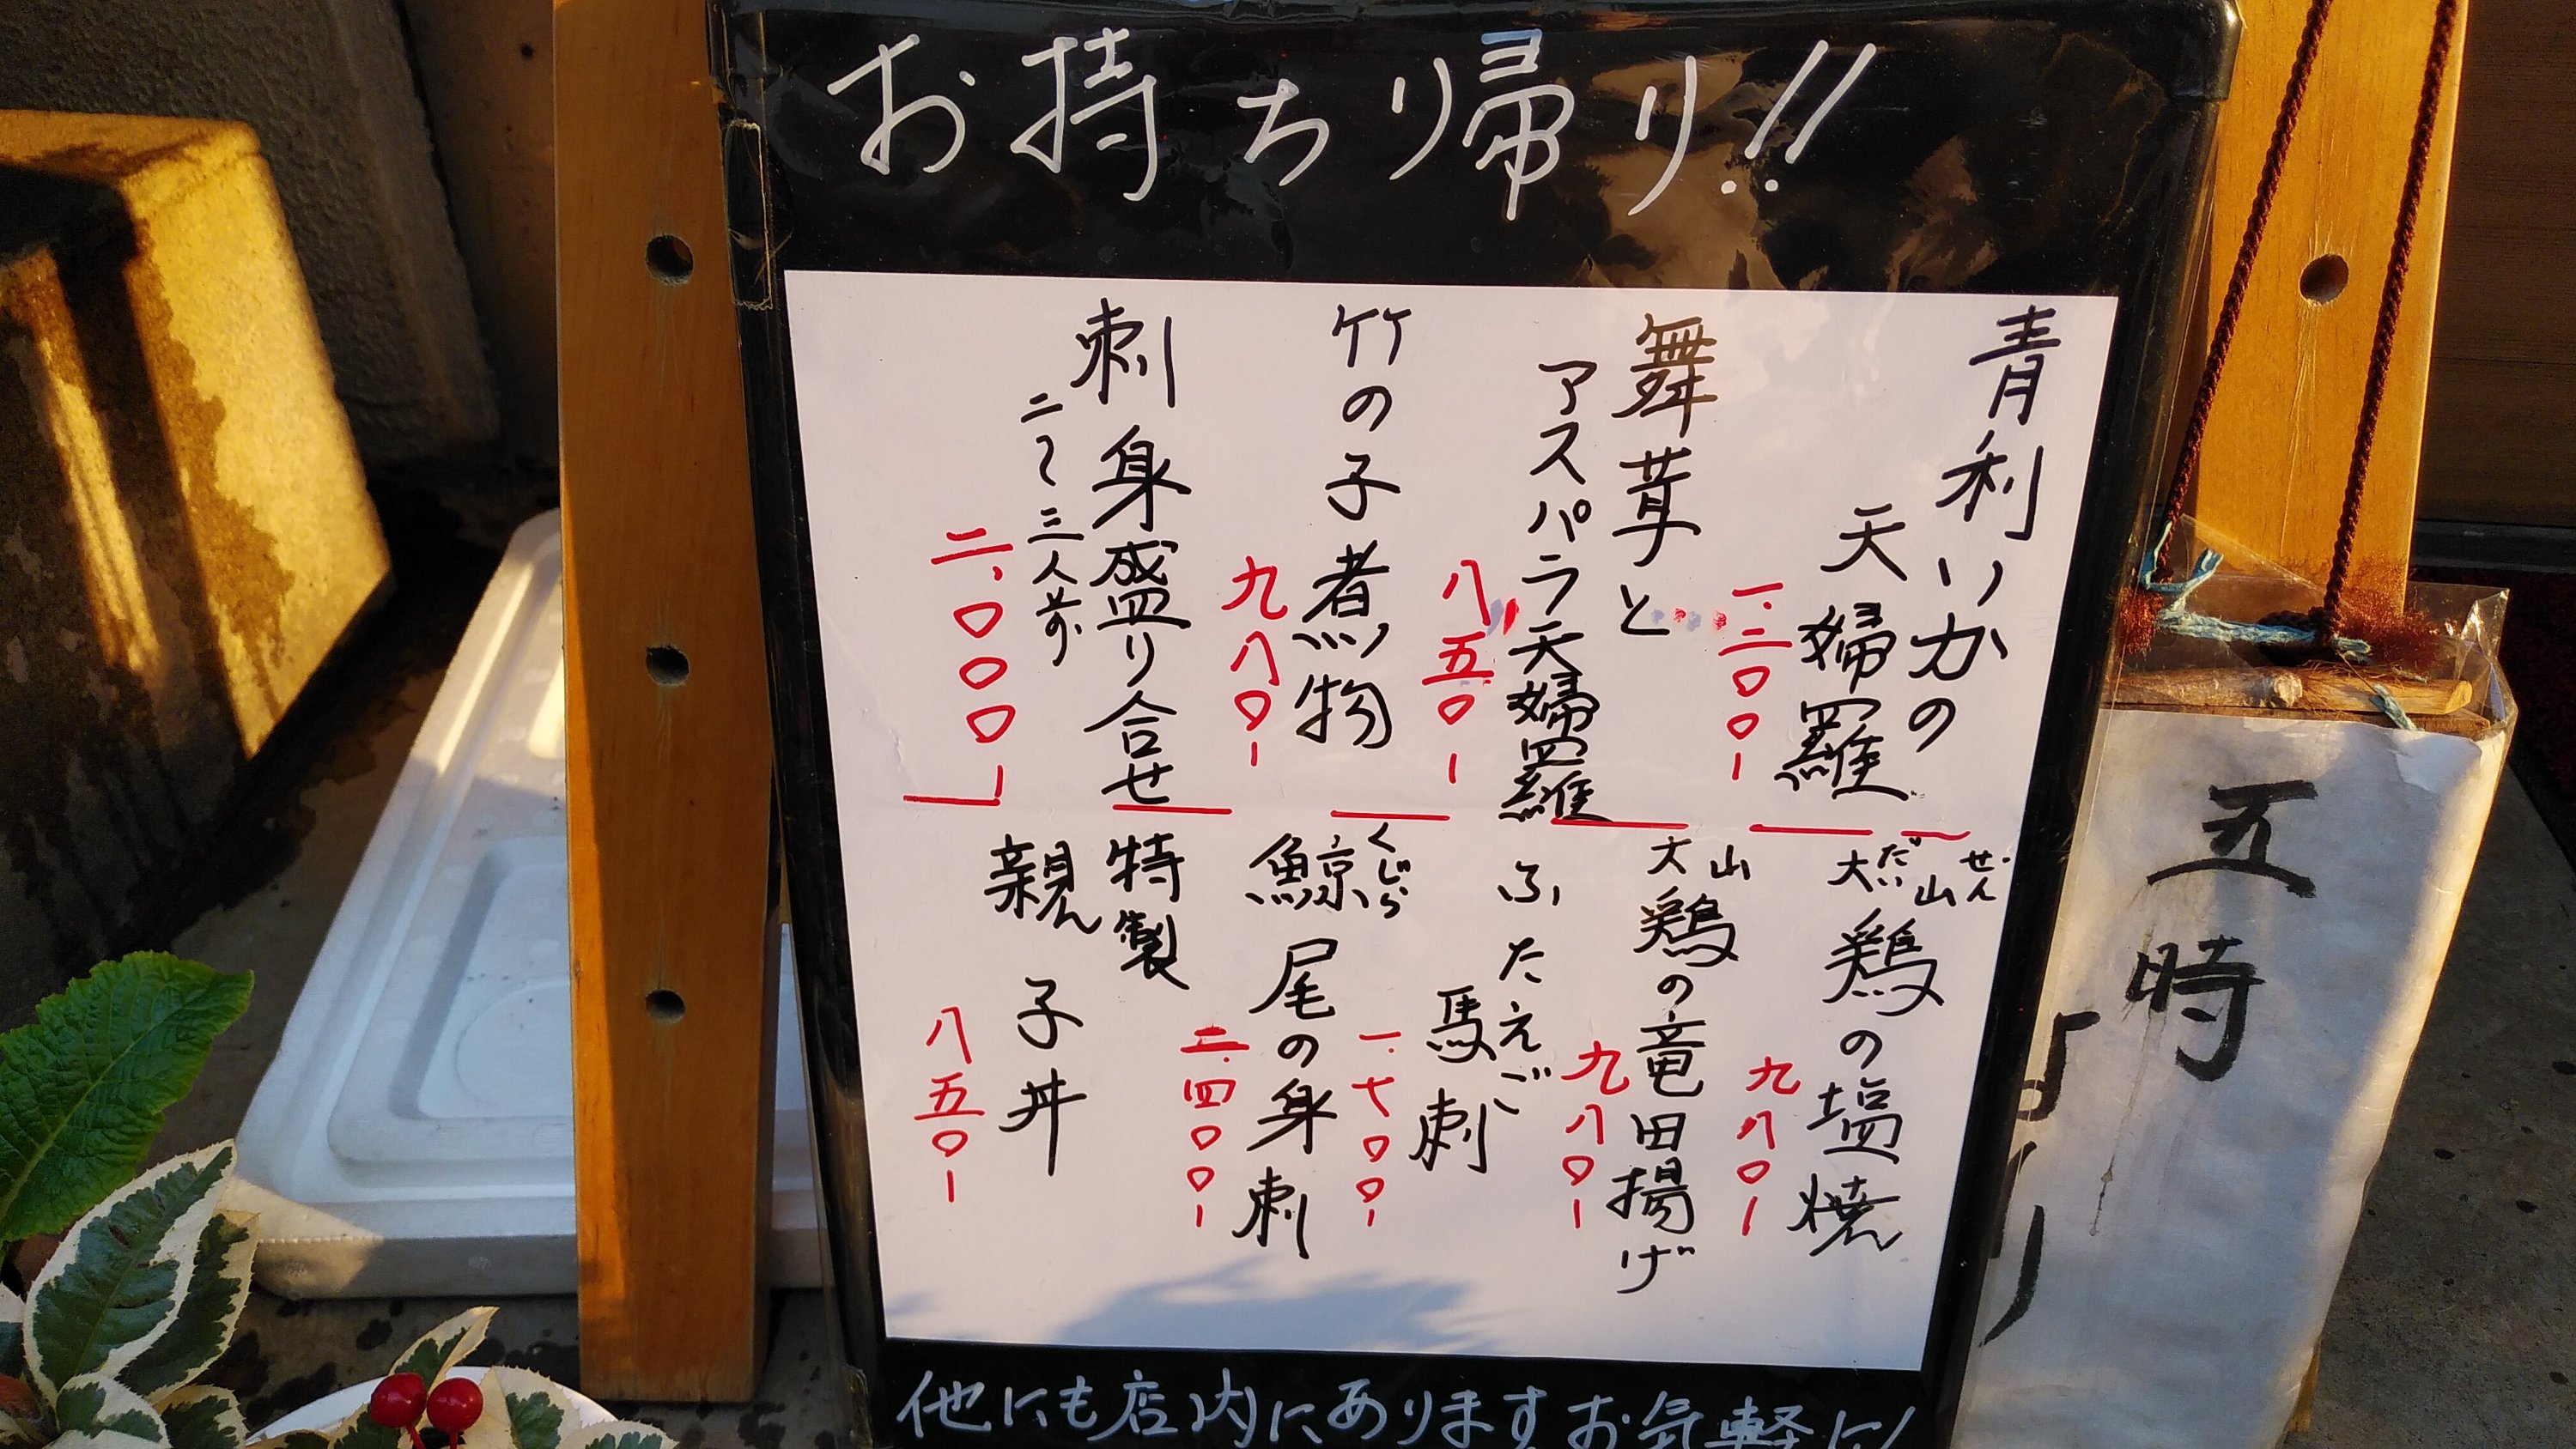 お持ち帰り!!
青利いかの
天婦羅
一.二〇〇-
舞茸と
アスパラ天婦羅
八五〇-
竹の子煮物
九八〇-
刺身盛り合せ
二〜三人前
二、〇〇〇-
大山鶏の塩焼
だいせん
九八〇-
大山鶏の竜田揚げ
九八〇-
ふたえご
馬刺
一.七〇〇-
鯨尾の身刺
くじら
二.四〇〇-
特製
親子丼
八五〇-
他にも店内にありますお気軽に!
五時
より